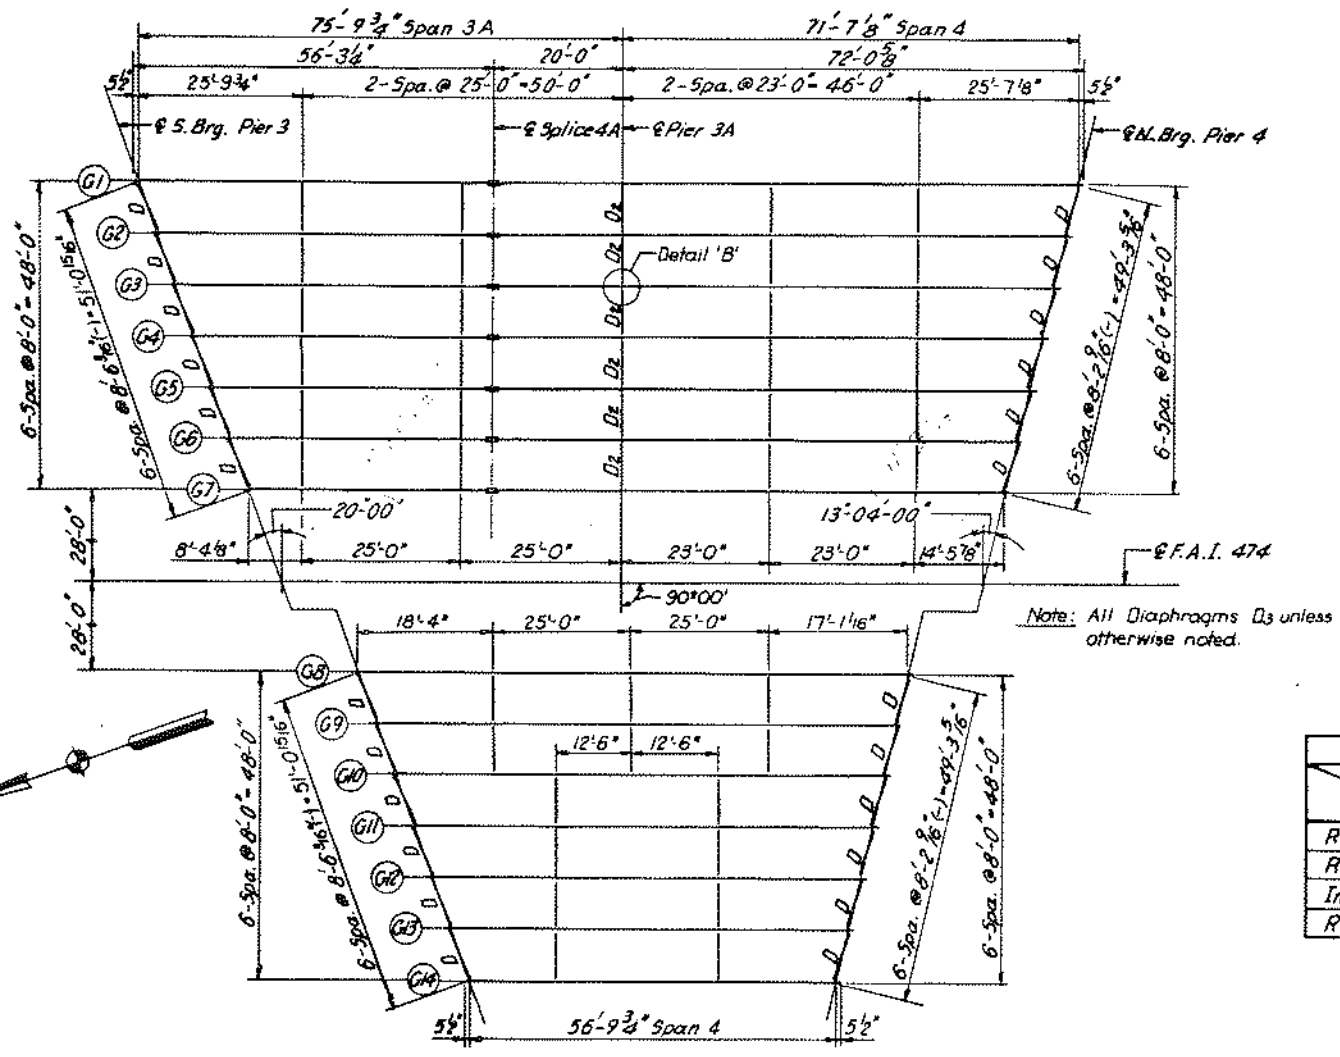 75'-9 3/4" Span 3A
71'-7 1/8" Span 4
56'-3 1/4"
20'-0"
72'-0 5/8"
5 1/2"
25'-9 3/4"
2-Spa. @ 25'-0" = 50'-0"
2-Spa. @ 23'-0" = 46'-0"
25'-7 1/8"
5 1/2"
℄ S. Brg. Pier 3
℄ Splice 4A
℄ Pier 3A
℄ N. Brg. Pier 4
G1
G2
G3
G4
G5
G6
G7
D
D
D
D
D
D
D2
D2
D2
D2
D2
D2
D
D
D
D
D
D
Detail 'B'
6-Spa. @ 8'-0" = 48'-0"
6-Spa. @ 8'-6 3/16" (-) = 51'-0 15/16"
6-Spa. @ 8'-2 9/16" (-) = 49'-3 5/16"
6-Spa. @ 8'-0" = 48'-0"
20°00'
13°-04'-00"
28'-0"
8'-4 1/8"
25'-0"
25'-0"
23'-0"
23'-0"
14'-5 7/8"
℄ F.A.I. 474
90°00'
28'-0"
Note: All Diaphragms D3 unless
otherwise noted.
18'-4"
25'-0"
25'-0"
17'-1 1/16"
G8
G9
G10
G11
G12
G13
G14
D
D
D
D
D
D
D
D
D
D
D
D
12'-6"
12'-6"
6-Spa. @ 8'-0" = 48'-0"
6-Spa. @ 8'-6 3/16" (-) = 51'-0 15/16"
6-Spa. @ 8'-2 9/16" (-) = 49'-3 5/16"
6-Spa. @ 8'-0" = 48'-0"
5 1/2"
56'-9 3/4" Span 4
5 1/2"
R
R
R